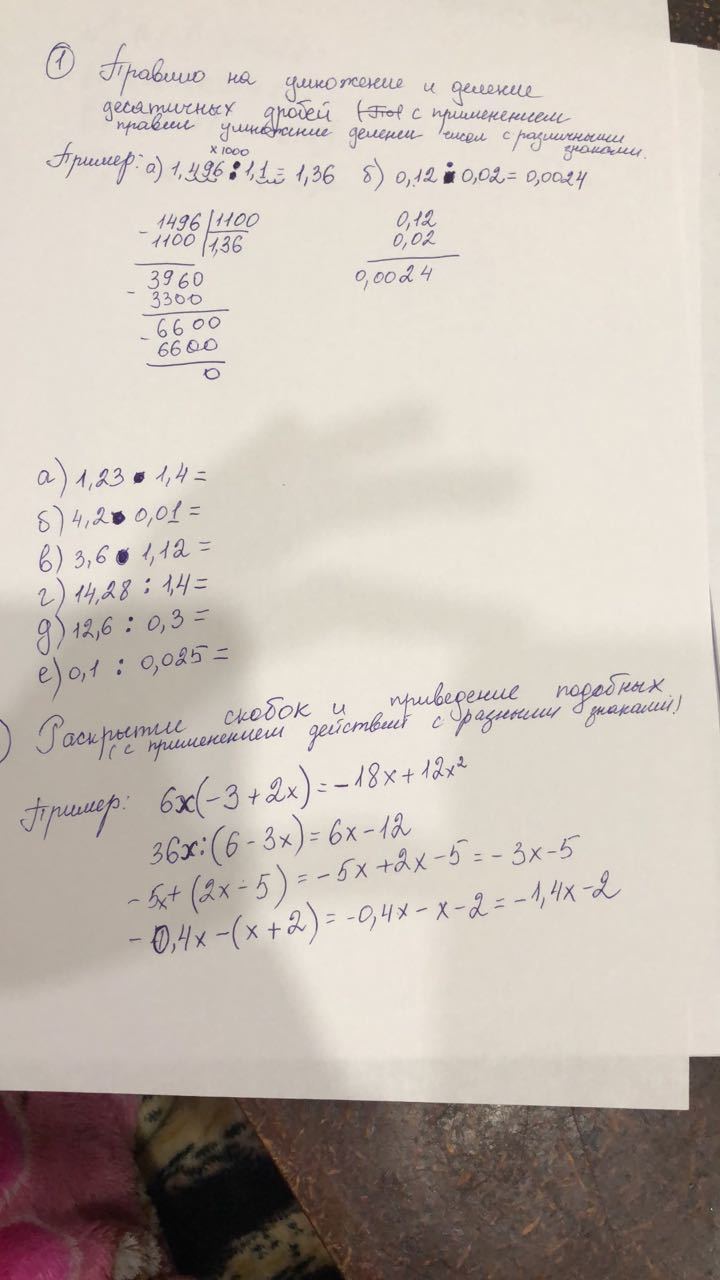 1 Правило на умножение и деление
десятичных дробей с применением
правил умножение делен чисел с различными
знаками.
х1000
Пример: а) 1,496 : 1,1 = 1,36 б) 0,12 • 0,02 = 0,0024
- 1496 | 1100 0,12
1100 | 1,36 0,02
3960 0,0024
- 3300
- 6600
6600
0
а) 1,23 • 1,4 =
б) 4,2 • 0,01 =
в) 3,6 • 1,12 =
г) 14,28 : 1,4 =
д) 12,6 : 0,3 =
е) 0,1 : 0,025 =
) Раскрытие скобок и приведение подобных
(с применением действий с разными знаками)
Пример: 6х(-3+2х) = -18х+12х²
36х:(6-3х) = 6х-12
-5х+(2х-5) = -5х+2х-5 = -3х-5
-0,4х-(х+2) = -0,4х-х-2 = -1,4х-2